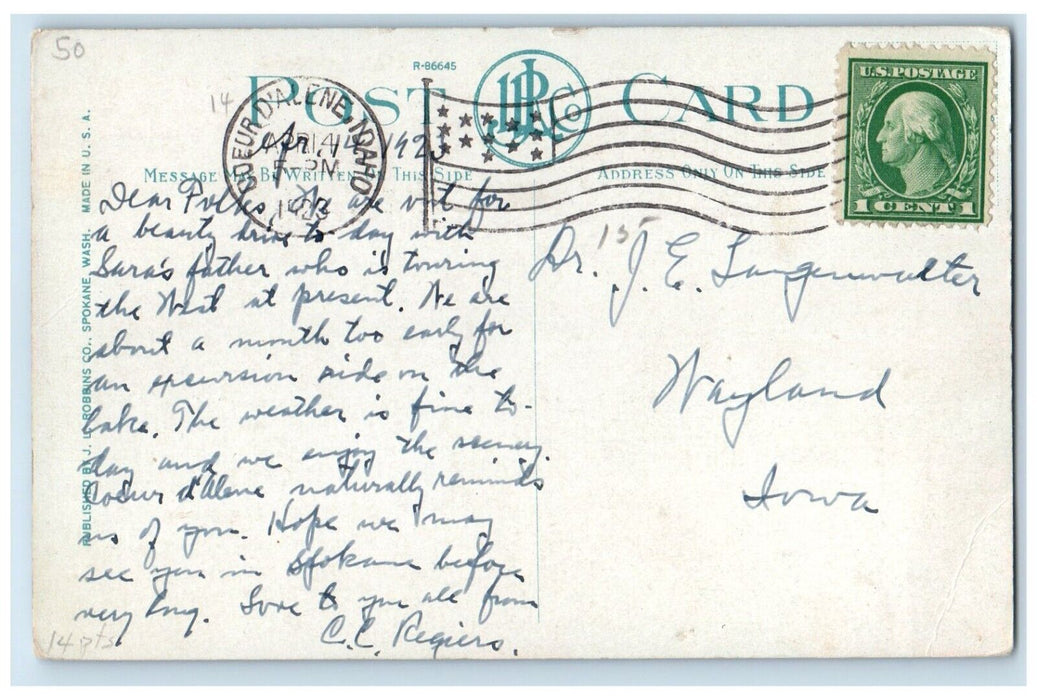 50
R-86645
POST CARD
JLR Co
U.S. POSTAGE
1 CENT 1
14
COEUR D'ALENE, IDAHO
APR 14
5 PM
1923
Apr. 14 1923
MESSAGE MAY BE WRITTEN ON THIS SIDE
ADDRESS ONLY ON THIS SIDE
PUBLISHED BY J. L. ROBBINS CO., SPOKANE, WASH. MADE IN U. S. A.
Dear Folks We are out for
a beauty drive to day with
Sara's father who is touring
the West at present. We are
about a month too early for
an excursion ride on the
lake. The weather is fine to-
day and we enjoy the scenery.
Coeur d'Alene naturally reminds
us of you. Hope we may
see you in Spokane before
very long. Love to you all from
C.C. Regiers.
14 pts
Dr. J. E. Langenwalter
155
Wayland
Iowa